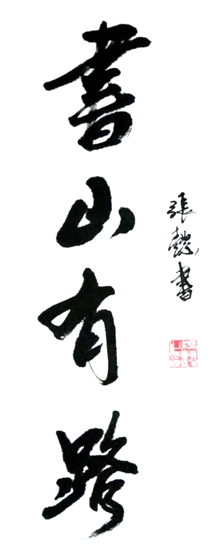 書山有路
張懿書